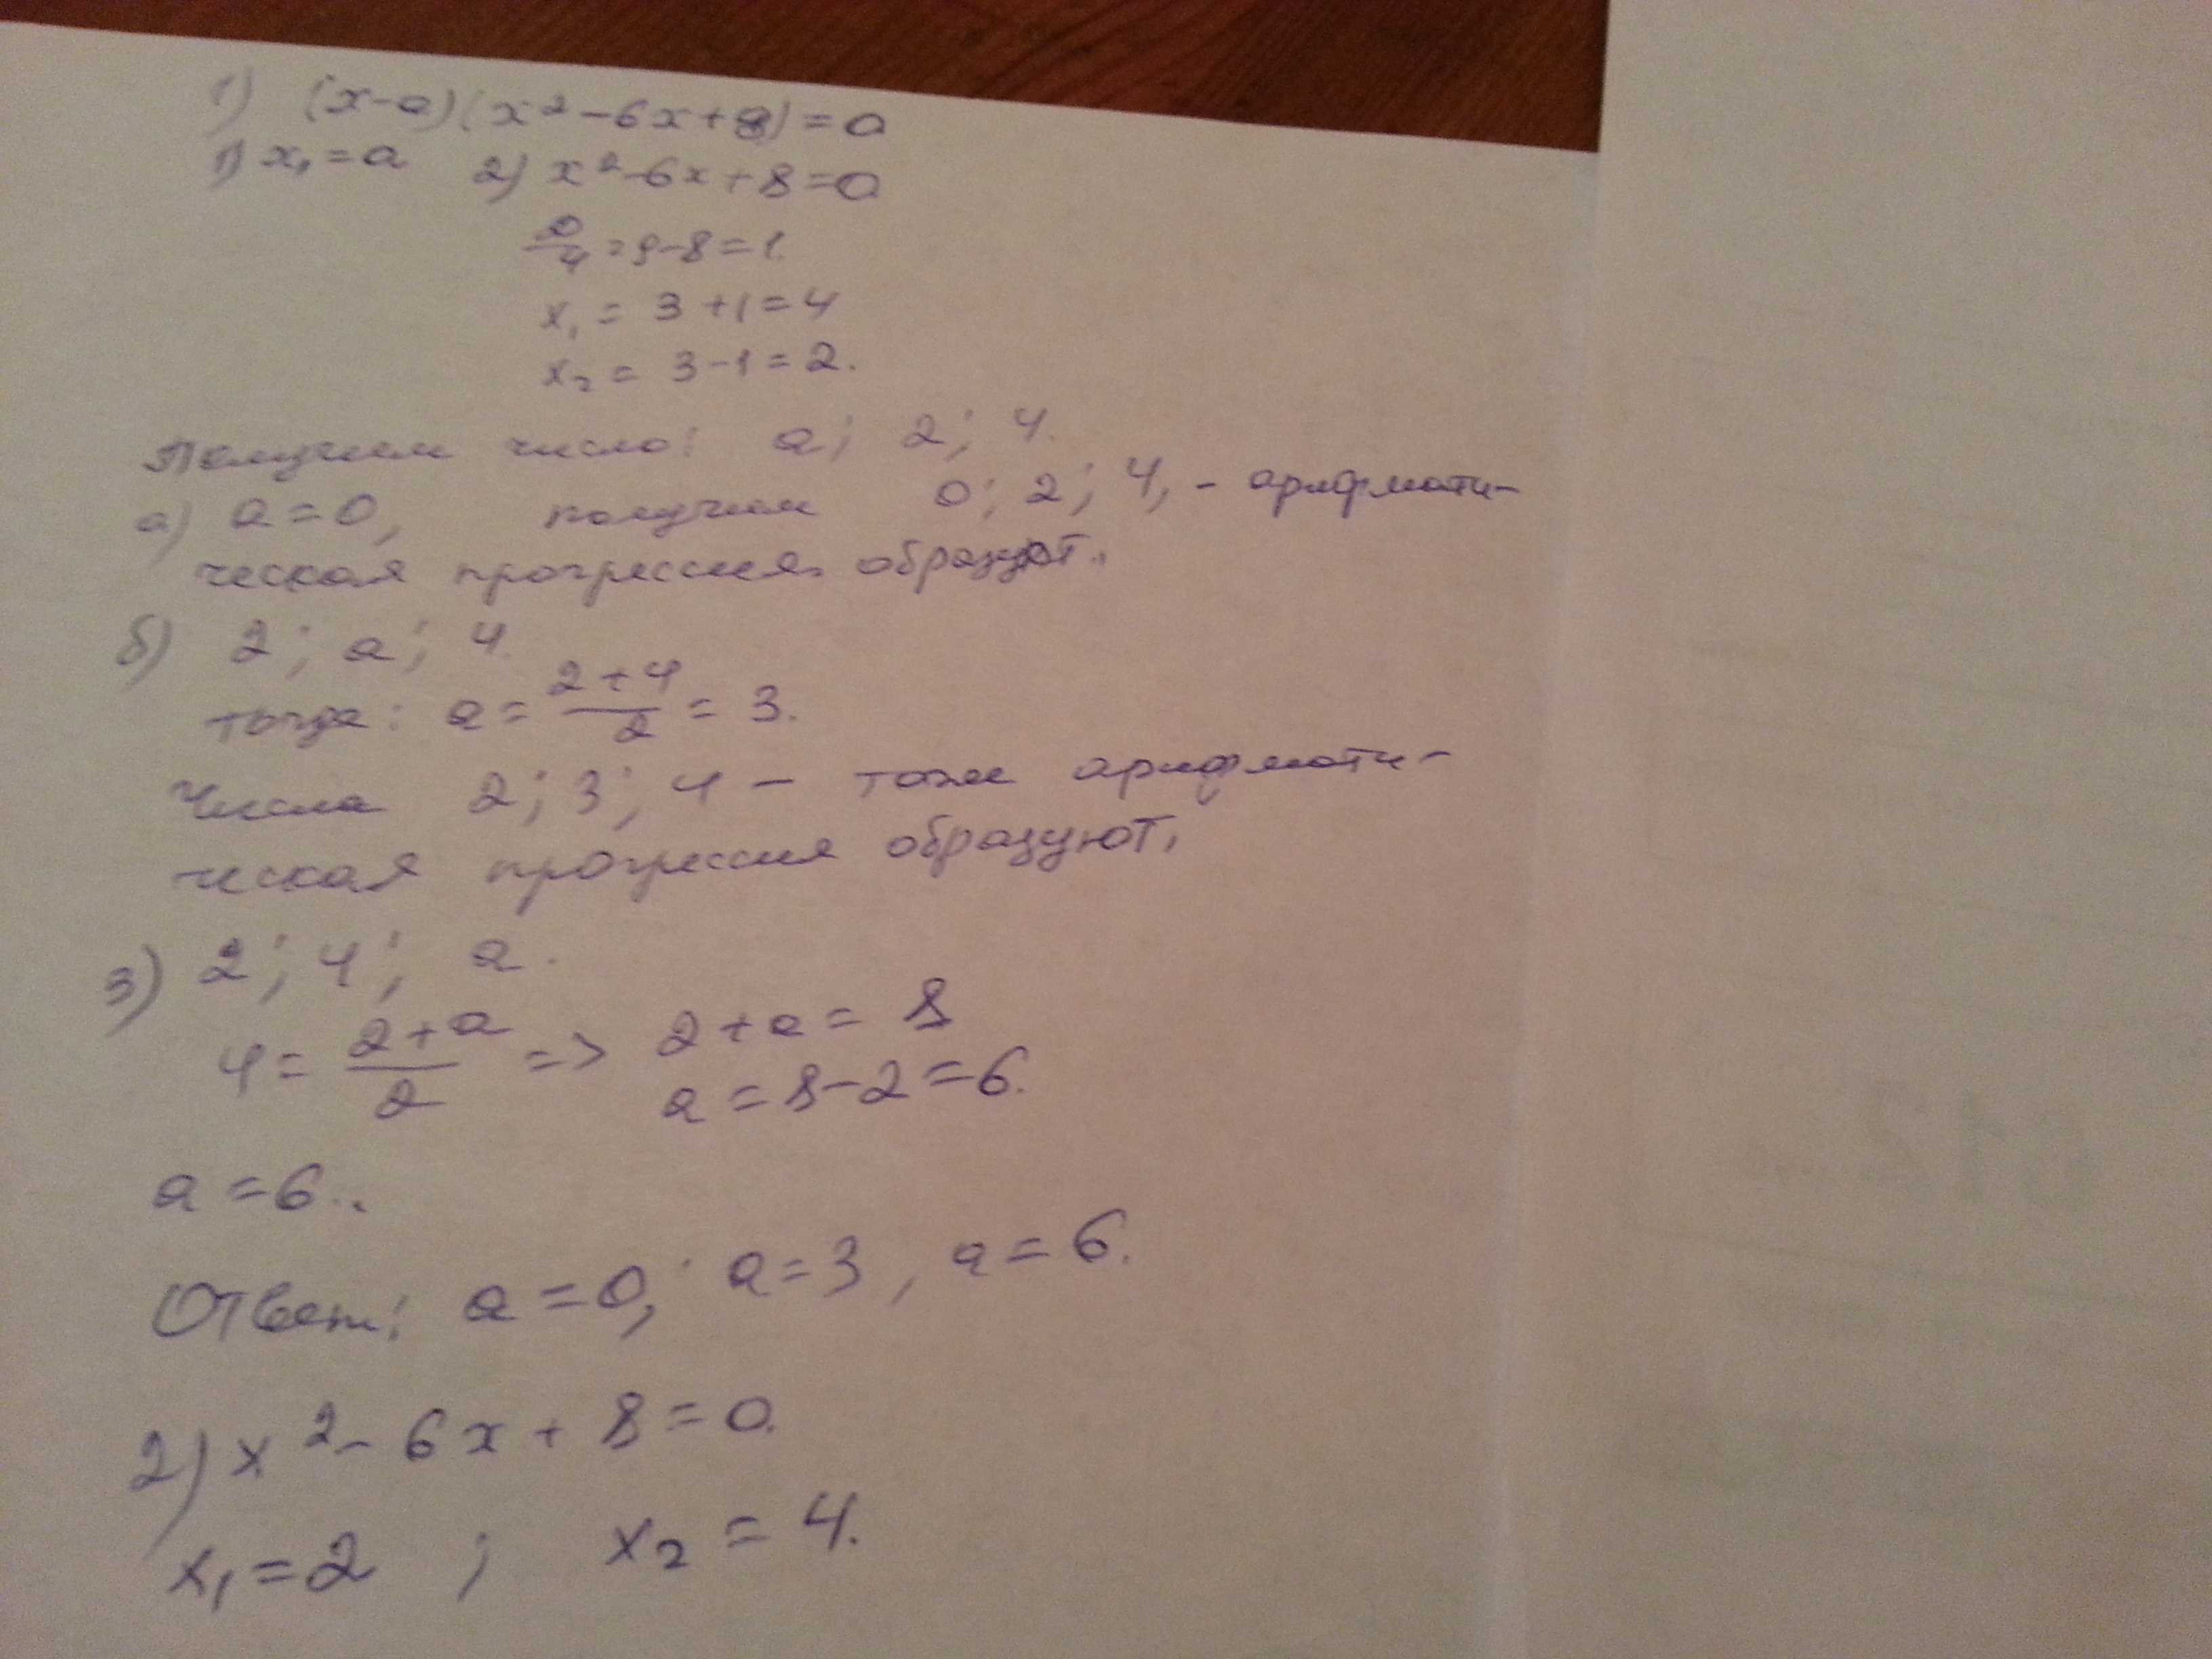 1) (x-a)(x²-6x+8)=0
1) x₁=a 2) x²-6x+8=0
D/4=9-8=1.
x₁ = 3+1=4
x₂ = 3-1=2.
Получим число: a; 2; 4.
а) a=0, получим 0; 2; 4, - арифмети-
ческая прогрессия образуют.
б) 2; a; 4.
тогда: a = (2+4)/2 = 3.
Числа 2; 3; 4 - тоже арифмети-
ческая прогрессия образуют.
3) 2; 4; a.
4 = (2+a)/2 => 2+a = 8
a = 8-2=6.
a=6.
Ответ: a=0; a=3, a=6.
2) x²-6x+8=0.
x₁=2 ; x₂=4.